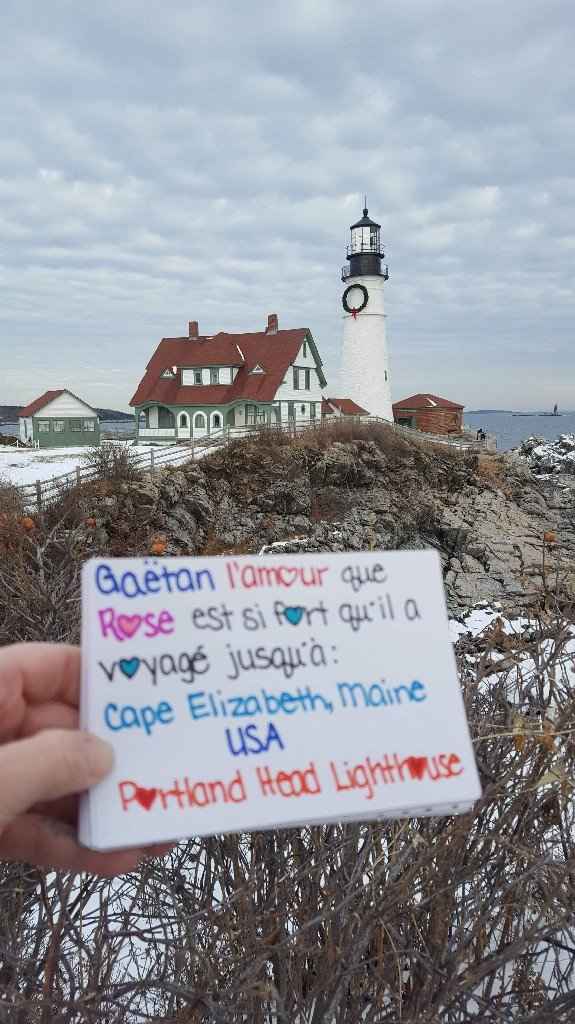 Gaëtan l'amour que
Rose est si fort qu'il a
voyagé jusqu'à:
Cape Elizabeth, Maine
USA
Portland Head Lighthouse